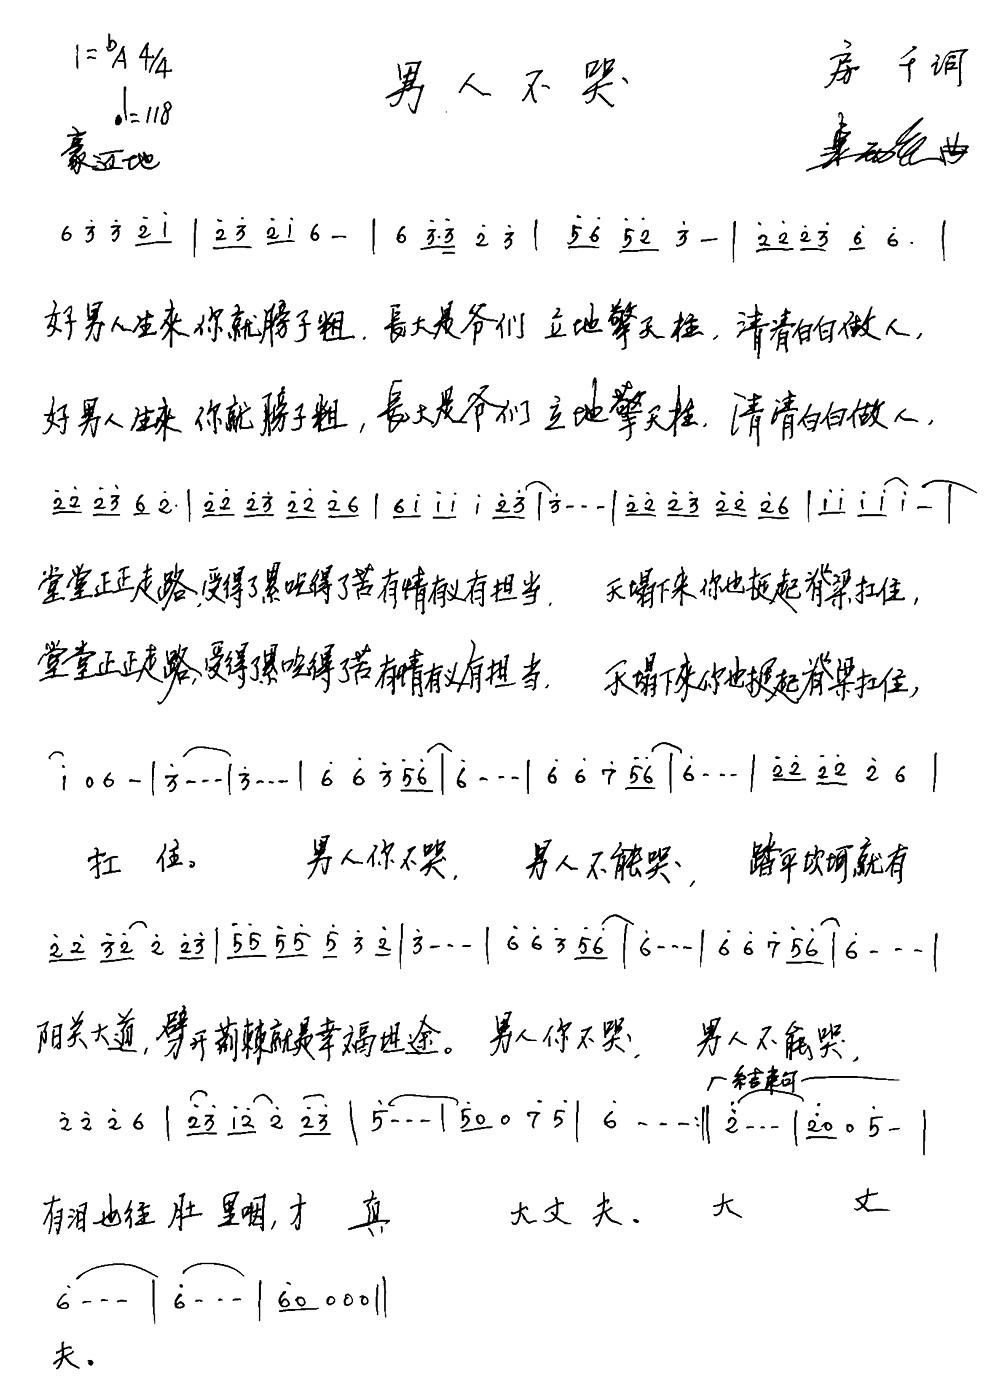 1=bA 4/4
男人不哭
房千词
♩=118
豪迈地
曲
6 3 3 2 1 | 2 3 2 1 6 — | 6 3·3 2 3 | 5 6 5 2 3 — | 2 2 2 3 6 6· |
好男人生來你就膀子粗，長大是爷们立地擎天柱，清清白白做人，
好男人生來你就膀子粗，長大是爷们立地擎天柱，清清白白做人，
2 2 2 3 6 2· | 2 2 2 3 2 2 2 6 | 6 1 1 1 1 2 3 | 3 - - - | 2 2 2 3 2 2 2 6 | 1 1 1 1 1 — |
堂堂正正走路，受得了累吃得了苦有情有义有担当，天塌下来你也挺起脊梁扛住，
堂堂正正走路，受得了累吃得了苦有情有义有担当，天塌下來你也挺起脊梁扛住，
1 0 6 — | 3 - - - | 3 - - - | 6 6 3 5 6 | 6 - - - | 6 6 7 5 6 | 6 - - - | 2 2 2 2 2 6 |
扛住。男人你不哭，男人不能哭，踏平坎坷就有
2 2 3 2 2 2 3 | 5 5 5 5 5 3 2 | 3 - - - | 6 6 3 5 6 | 6 - - - | 6 6 7 5 6 | 6 - - - |
阳关大道，劈开荊棘就是幸福坦途。男人你不哭，男人不能哭，
结束句
2 2 2 6 | 2 3 1 2 2 2 3 | 5 - - - | 5 0 0 7 5 | 6 - - - :‖ 2 - - - | 2 0 0 5 — |
有泪也往肚里咽，才真大丈夫。大丈
6 - - - | 6 - - - | 6 0 0 0 0 ‖
夫。